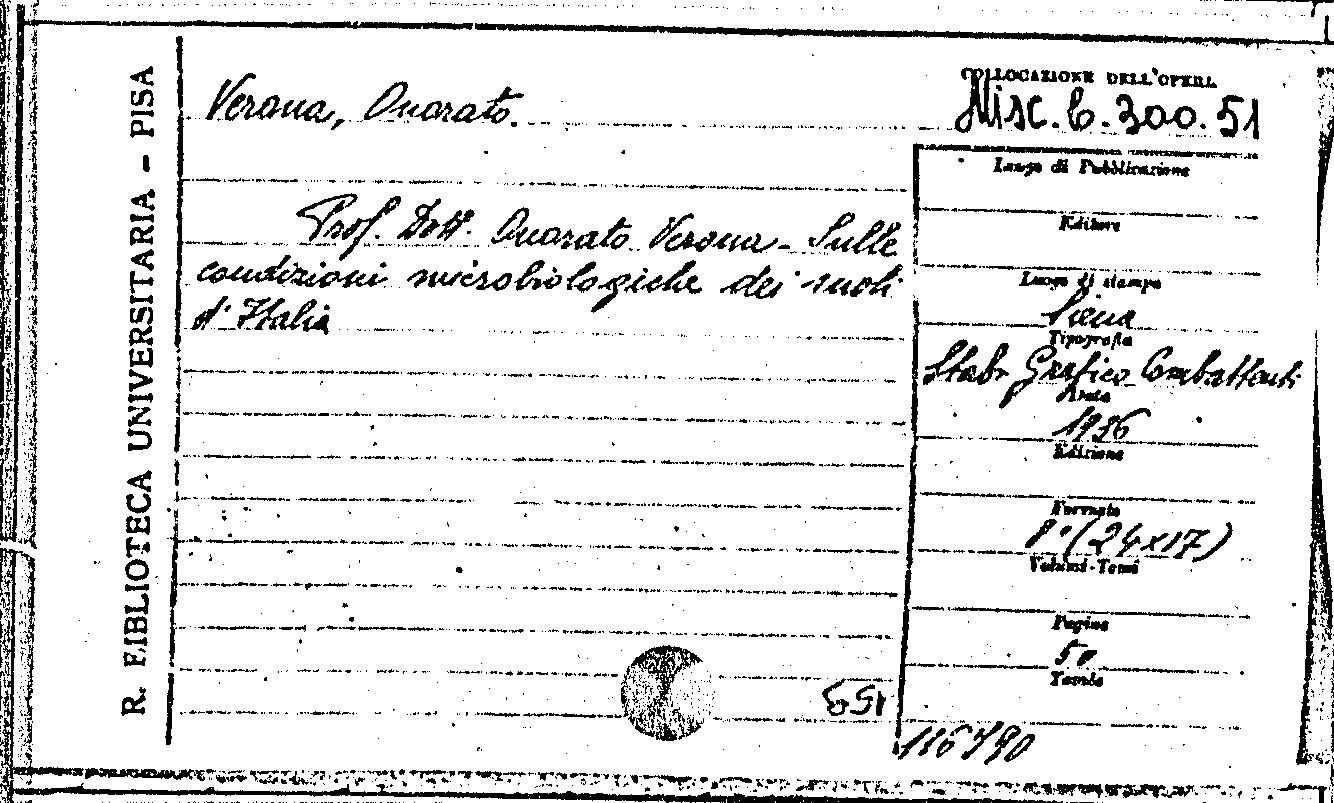 R. BIBLIOTECA UNIVERSITARIA - PISA
Verona, Onorato.
Prof. Dott. Onorato Verona - Sulle
condizioni microbiologiche dei suoli
d'Italia
COLLOCAZIONE DELL'OPERA
Misc. b. 300. 51
Luogo di Pubblicazione
Editore
Luogo di stampa
Siena
Tipografia
Stab. Grafico Combattenti
Anno
1936
Edizione
Formato
8° (24x17)
Volumi-Tomi
Pagine
50
Tavole
159
116790